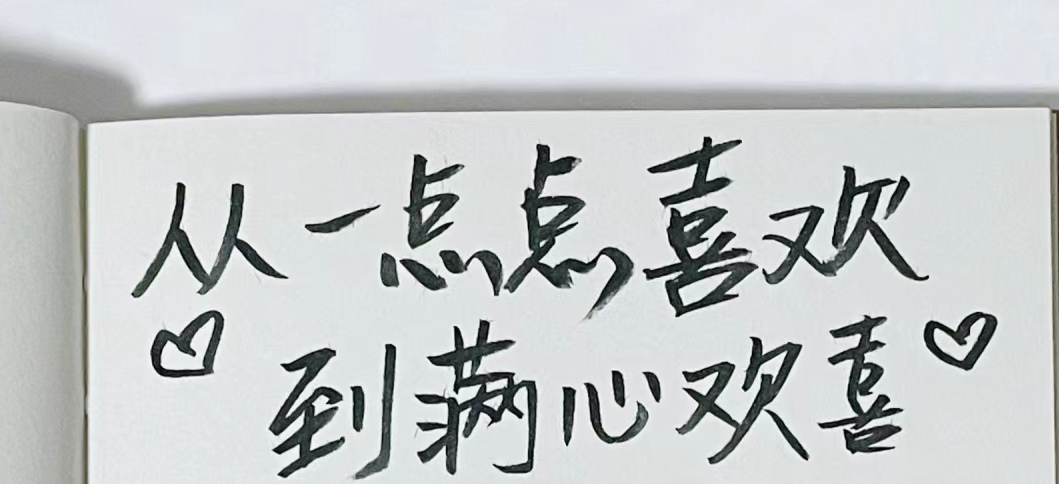 从一点点喜欢
♡到满心欢喜♡